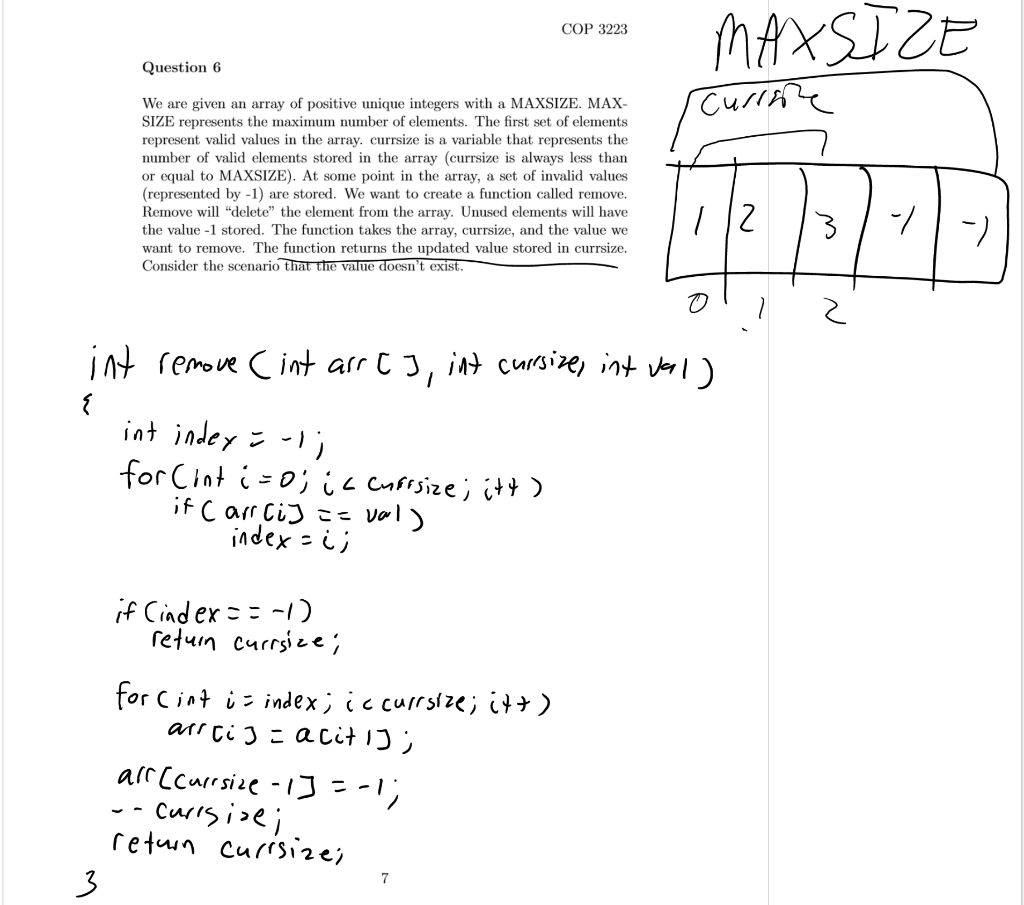 COP 3223
Question 6
We are given an array of positive unique integers with a MAXSIZE. MAX-
SIZE represents the maximum number of elements. The first set of elements
represent valid values in the array. currsize is a variable that represents the
number of valid elements stored in the array (currsize is always less than
or equal to MAXSIZE). At some point in the array, a set of invalid values
(represented by -1) are stored. We want to create a function called remove.
Remove will “delete” the element from the array. Unused elements will have
the value -1 stored. The function takes the array, currsize, and the value we
want to remove. The function returns the updated value stored in currsize.
Consider the scenario that the value doesn’t exist.
MAXSIZE
currsize
1 2 3 -1 -1
0 1 2
int remove(int arr[], int currsize, int val)
{
int index = -1;
for(int i=0; i< currsize; i++)
if( arr[i] == val)
index = i;
if(index == -1)
return currsize;
for(int i = index; i< currsize; i++)
arr[i] = a[i+1];
arr[currsize -1] = -1;
-- currsize;
return currsize;
}
7